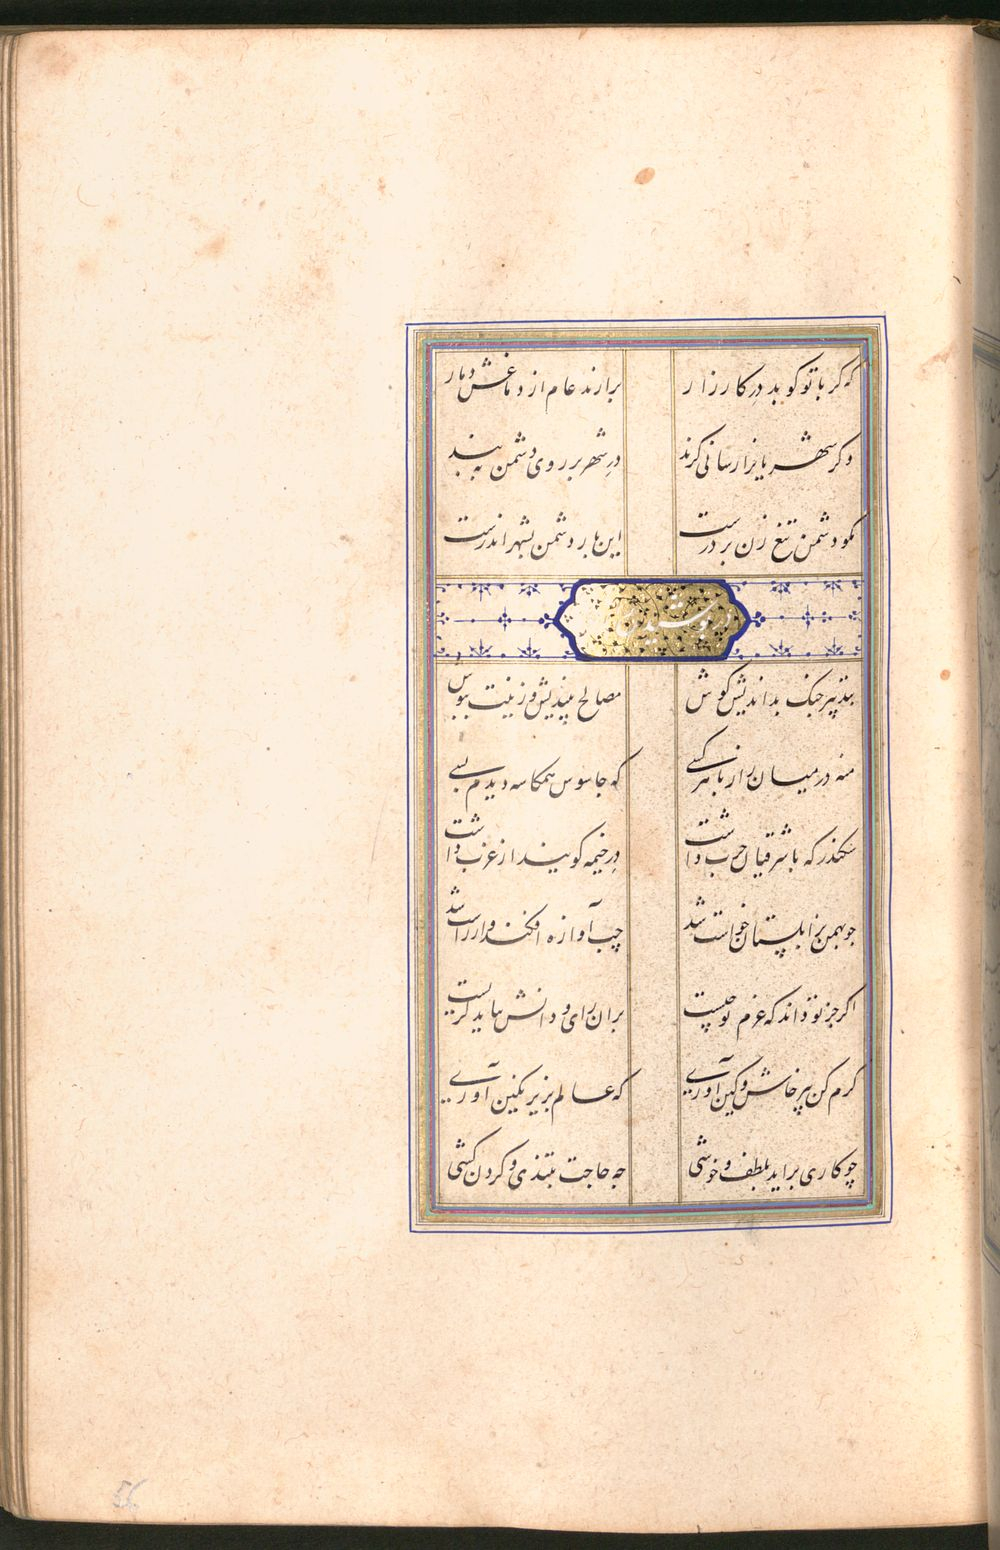 که کر با تو کوبد در کارزار برارند عام از دماغش دمار
وکر شهریانرا رسانی کزند در شهر بر روی دشمن مبند
مکو دشمن تیغ زن بر درست که انباز دشمن بشهر اندرست
در پوشیدن
بتدبیر جنک بداندیش کوش مصالح بیندیش و نیت بپوش
منه در میان راز با هر کسی که جاسوس همکاسه دیدم بسی
سکندر که با شرقیان حرب داشت در خیمه کویند از غرب داشت
چو بهمن بزابلستان خواست شد چپ آوازه افکند و از راست شد
اکر جز تو داند که عزم تو چیست بران رای و دانش بباید کریست
کرم کن نه پرخاش و کین آوری که عالم بزیر نکین آوری
چو کاری براید بلطف و خوشی چه حاجت بتندی و کردن کشی
56